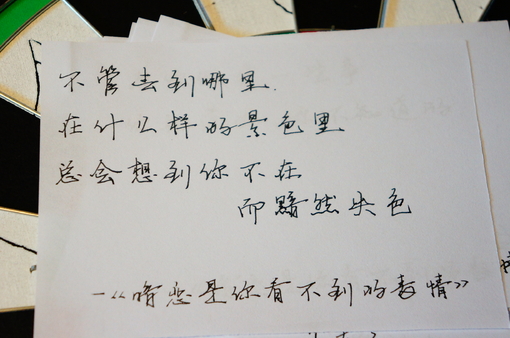 不管去到哪里.
在什么样的景色里
总会想到你不在
而黯然失色
—《暗恋是你看不到的表情》